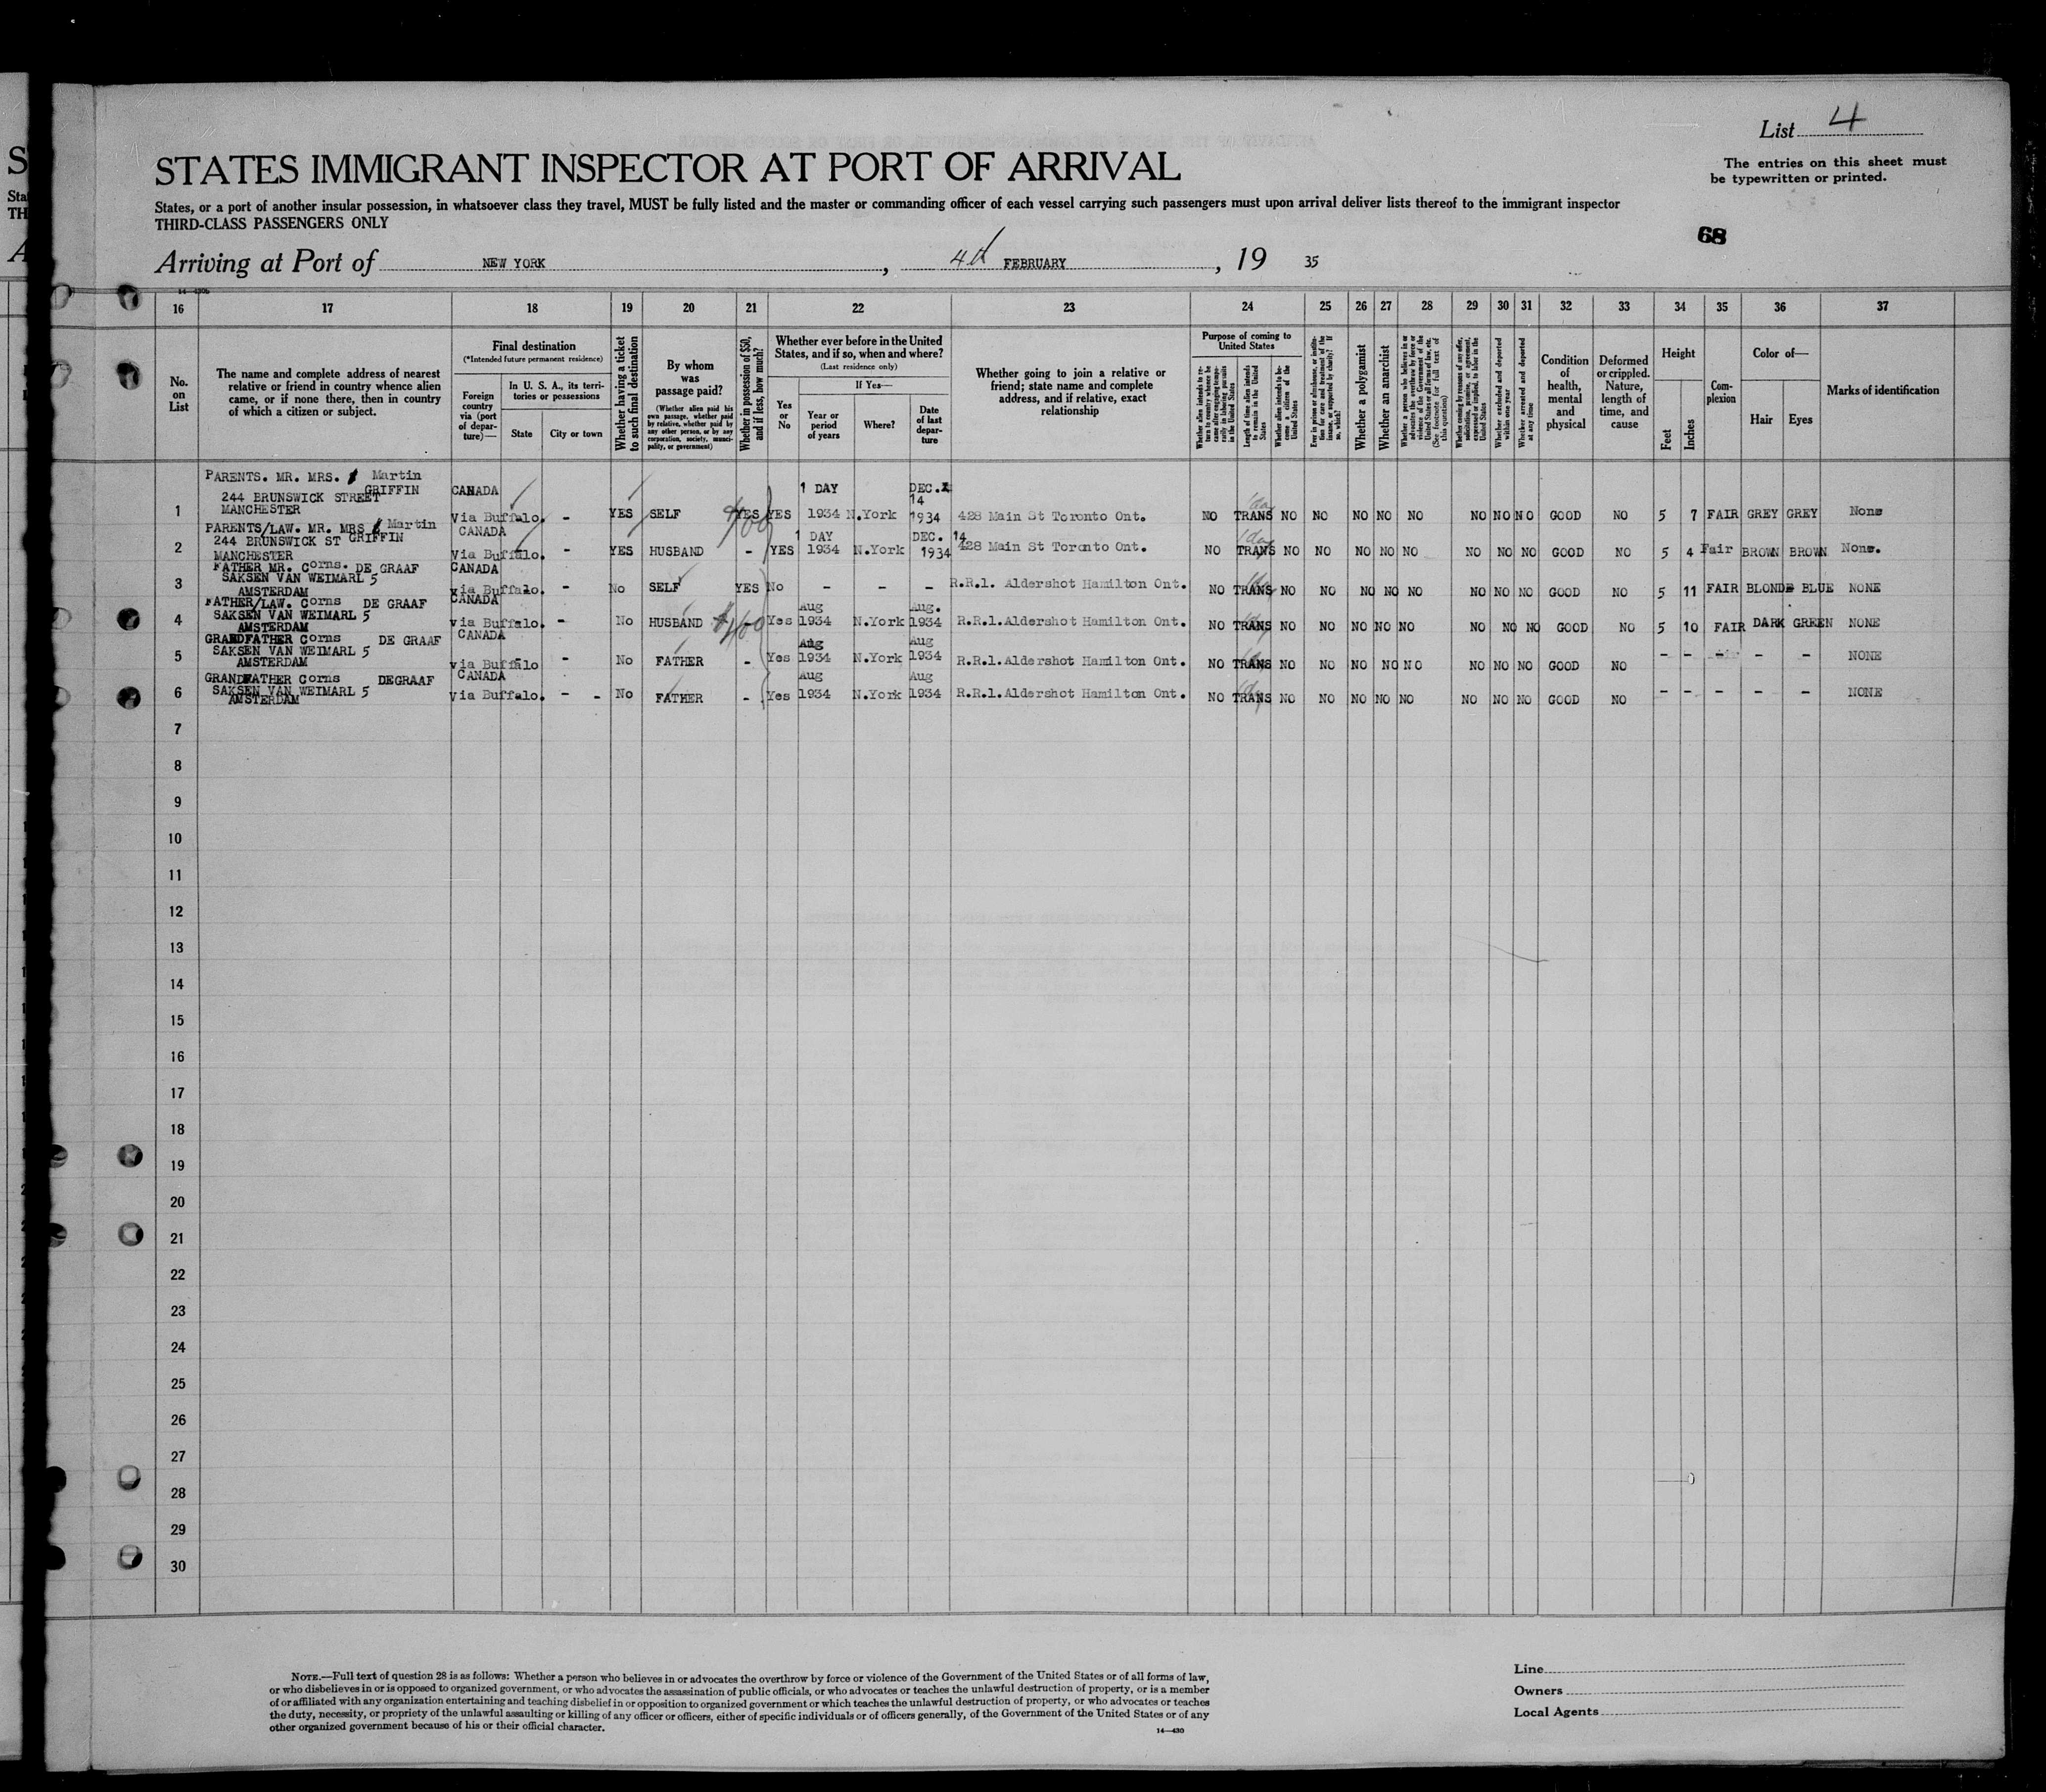 List 4
The entries on this sheet must
be typewritten or printed.
STATES IMMIGRANT INSPECTOR AT PORT OF ARRIVAL
States, or a port of another insular possession, in whatsoever class they travel, MUST be fully listed and the master or commanding officer of each vessel carrying such passengers must upon arrival deliver lists thereof to the immigrant inspector
THIRD-CLASS PASSENGERS ONLY
68
Arriving at Port of NEW YORK, 4th FEBRUARY, 19 35
16 17 18 19 20 21 22 23 24 25 26 27 28 29 30 31 32 33 34 35 36 37
No. on List
The name and complete address of nearest
relative or friend in country whence alien
came, or if none there, then in country
of which a citizen or subject.
Final destination
(*Intended future permanent residence)
Foreign country via (port of departure)—
In U. S. A., its territories or possessions
State
City or town
Whether having a ticket to such final destination
By whom was passage paid?
(Whether alien paid his own passage, whether paid by relative, whether paid by any other person, or by any corporation, society, municipality, or government)
Whether in possession of $50, and if less, how much?
Whether ever before in the United
States, and if so, when and where?
(Last residence only)
Yes or No
If Yes—
Year or period of years
Where?
Date of last departure
Whether going to join a relative or
friend; state name and complete
address, and if relative, exact
relationship
Purpose of coming to United States
Whether alien intends to return to country whence he came after engaging temporarily in laboring pursuits in the United States
Length of time alien intends to remain in the United States
Whether alien intends to become citizen of the United States
Ever in prison or almshouse, or institution for care and treatment of the insane, or supported by charity? If so, which?
Whether a polygamist
Whether an anarchist
Whether a person who believes in or advocates the overthrow by force or violence of the Government of the United States or all forms of law, etc. (See footnote for full text of this question)
Whether coming by reason of any offer, solicitation, promise, or agreement, expressed or implied, to labor in the United States
Whether excluded and deported within one year
Whether arrested and deported at any time
Condition of health, mental and physical
Deformed or crippled. Nature, length of time, and cause
Height
Feet
Inches
Complexion
Color of—
Hair
Eyes
Marks of identification
PARENTS. MR. MRS. Martin GRIFFIN
244 BRUNSWICK STREET
MANCHESTER
1 CANADA Via Buffalo. - YES SELF YES $100 YES 1 DAY 1934 N.York DEC. 14 1934 428 Main St Toronto Ont. NO TRANS 1 day NO NO NO NO NO NO NO NO GOOD NO 5 7 FAIR GREY GREY None
PARENTS/LAW. MR. MRS Martin GRIFFIN
244 BRUNSWICK ST
MANCHESTER
2 CANADA Via Buffalo. - YES HUSBAND - YES 1 DAY 1934 N.York DEC. 14 1934 428 Main St Toronto Ont. NO TRANS 1 day NO NO NO NO NO NO NO NO GOOD NO 5 4 Fair BROWN BROWN None.
FATHER MR. Corns. DE GRAAF
SAKSEN VAN WEIMARL 5
AMSTERDAM
3 CANADA via Buffalo. - No SELF YES No - - - R.R.1. Aldershot Hamilton Ont. NO TRANS NO NO NO NO NO NO NO NO GOOD NO 5 11 FAIR BLONDE BLUE NONE
FATHER/LAW. Corns DE GRAAF
SAKSEN VAN WEIMARL 5
AMSTERDAM
4 CANADA via Buffalo. - No HUSBAND $400 - Yes Aug 1934 N.York Aug. 1934 R.R.1.Aldershot Hamilton Ont. NO TRANS NO NO NO NO NO NO NO NO GOOD NO 5 10 FAIR DARK GREEN NONE
GRANDFATHER Corns DE GRAAF
SAKSEN VAN WEIMARL 5
AMSTERDAM
5 CANADA via Buffalo - No FATHER - Yes Aug 1934 N.York Aug 1934 R.R.1.Aldershot Hamilton Ont. NO TRANS NO NO NO NO NO NO NO NO GOOD NO - - - - - NONE
GRANDFATHER Corns DEGRAAF
SAKSEN VAN WEIMARL 5
AMSTERDAM
6 CANADA via Buffalo. - - No FATHER - Yes Aug 1934 N.York Aug 1934 R.R.1.Aldershot Hamilton Ont. NO TRANS NO NO NO NO NO NO NO NO GOOD NO - - - - - NONE
7
8
9
10
11
12
13
14
15
16
17
18
19
20
21
22
23
24
25
26
27
28
29
30
NOTE.—Full text of question 28 is as follows: Whether a person who believes in or advocates the overthrow by force or violence of the Government of the United States or of all forms of law,
or who disbelieves in or is opposed to organized government, or who advocates the assassination of public officials, or who advocates or teaches the unlawful destruction of property, or is a member
of or affiliated with any organization entertaining and teaching disbelief in or opposition to organized government or which teaches the unlawful destruction of property, or who advocates or teaches
the duty, necessity, or propriety of the unlawful assaulting or killing of any officer or officers, either of specific individuals or of officers generally, of the Government of the United States or of any
other organized government because of his or their official character.
14—430
Line
Owners
Local Agents